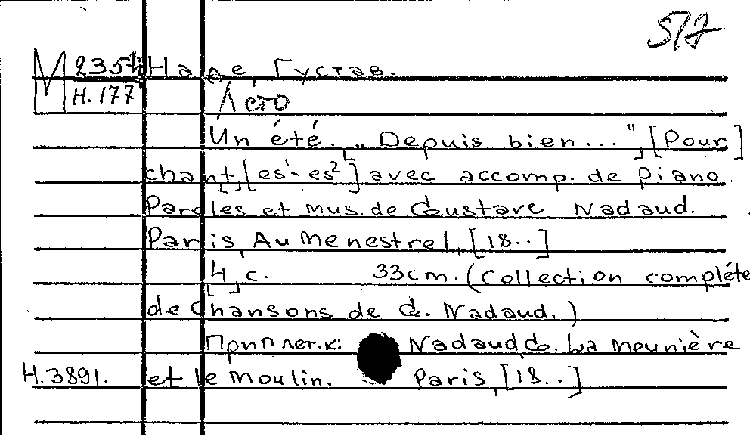 517
М 2354 Наде, Густав.
Н. 177 Лето
Un été. „Depuis bien...", [Pour]
chant [es¹-es²] avec accomp. de piano.
Paroles et mus. de Gustave Nadaud.
Paris, Au Menestrel, [18..]
[4] с. 33см. (Collection complète
de Chansons de G. Nadaud.)
Приплет. к: Nadaud, G. La meunière
Н.3891. et le moulin. Paris, [18..]